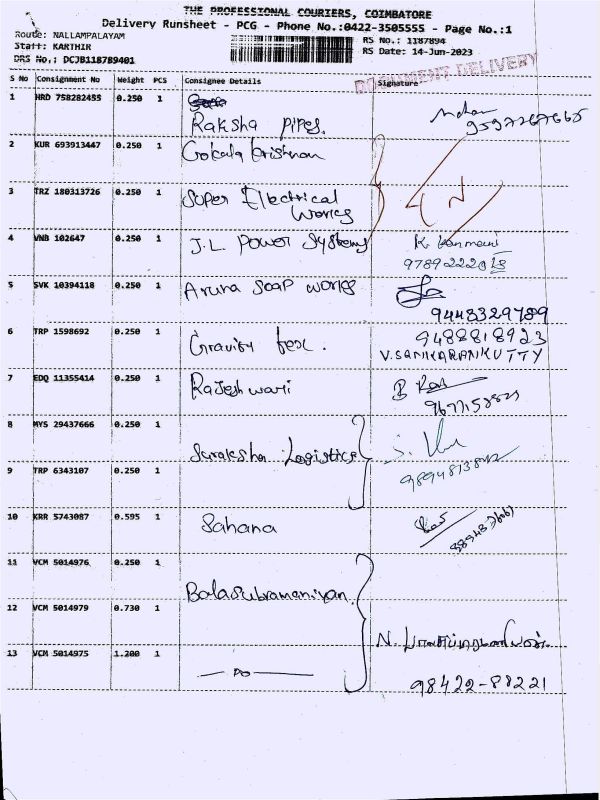 THE PROFESSIONAL COURIERS, COIMBATORE
Delivery Runsheet - PCG - Phone No.:0422-3505555 - Page No.:1
Route: NALLAMPALAYAM
RS No.: 1187894
Staff: KARTHIR
RS Date: 14-Jun-2023
DRS No.: DCJB118789401
DOCUMENT DELIVERY
S No Consignment No Weight PCS Consignee Details Signature
1 HRD 758282455 0.250 1
Raksha pipes.
2 KUR 693913447 0.250 1 Gokala krishnan
3 TRZ 180313726 0.250 1 Super Electrical
works
4 VNB 102647 0.250 1 J.L. Power Systems
5 SVK 10394118 0.250 1 Aruna Soap works
9448329789
6 TRP 1598692 0.250 1 Gravity 9488818923
V.SANKARANKUTTY
7 EDQ 11355414 0.250 1 Rajeshwari
8 MYS 29437666 0.250 1
Suraksha Logistics
9 TRP 6343107 0.250 1
10 KRR 5743087 0.595 1 Sahana
11 VCM 5014976 0.250 1
Balasubramaniyan.
12 VCM 5014979 0.730 1
13 VCM 5014975 1.200 1
— DO —
98422-88221